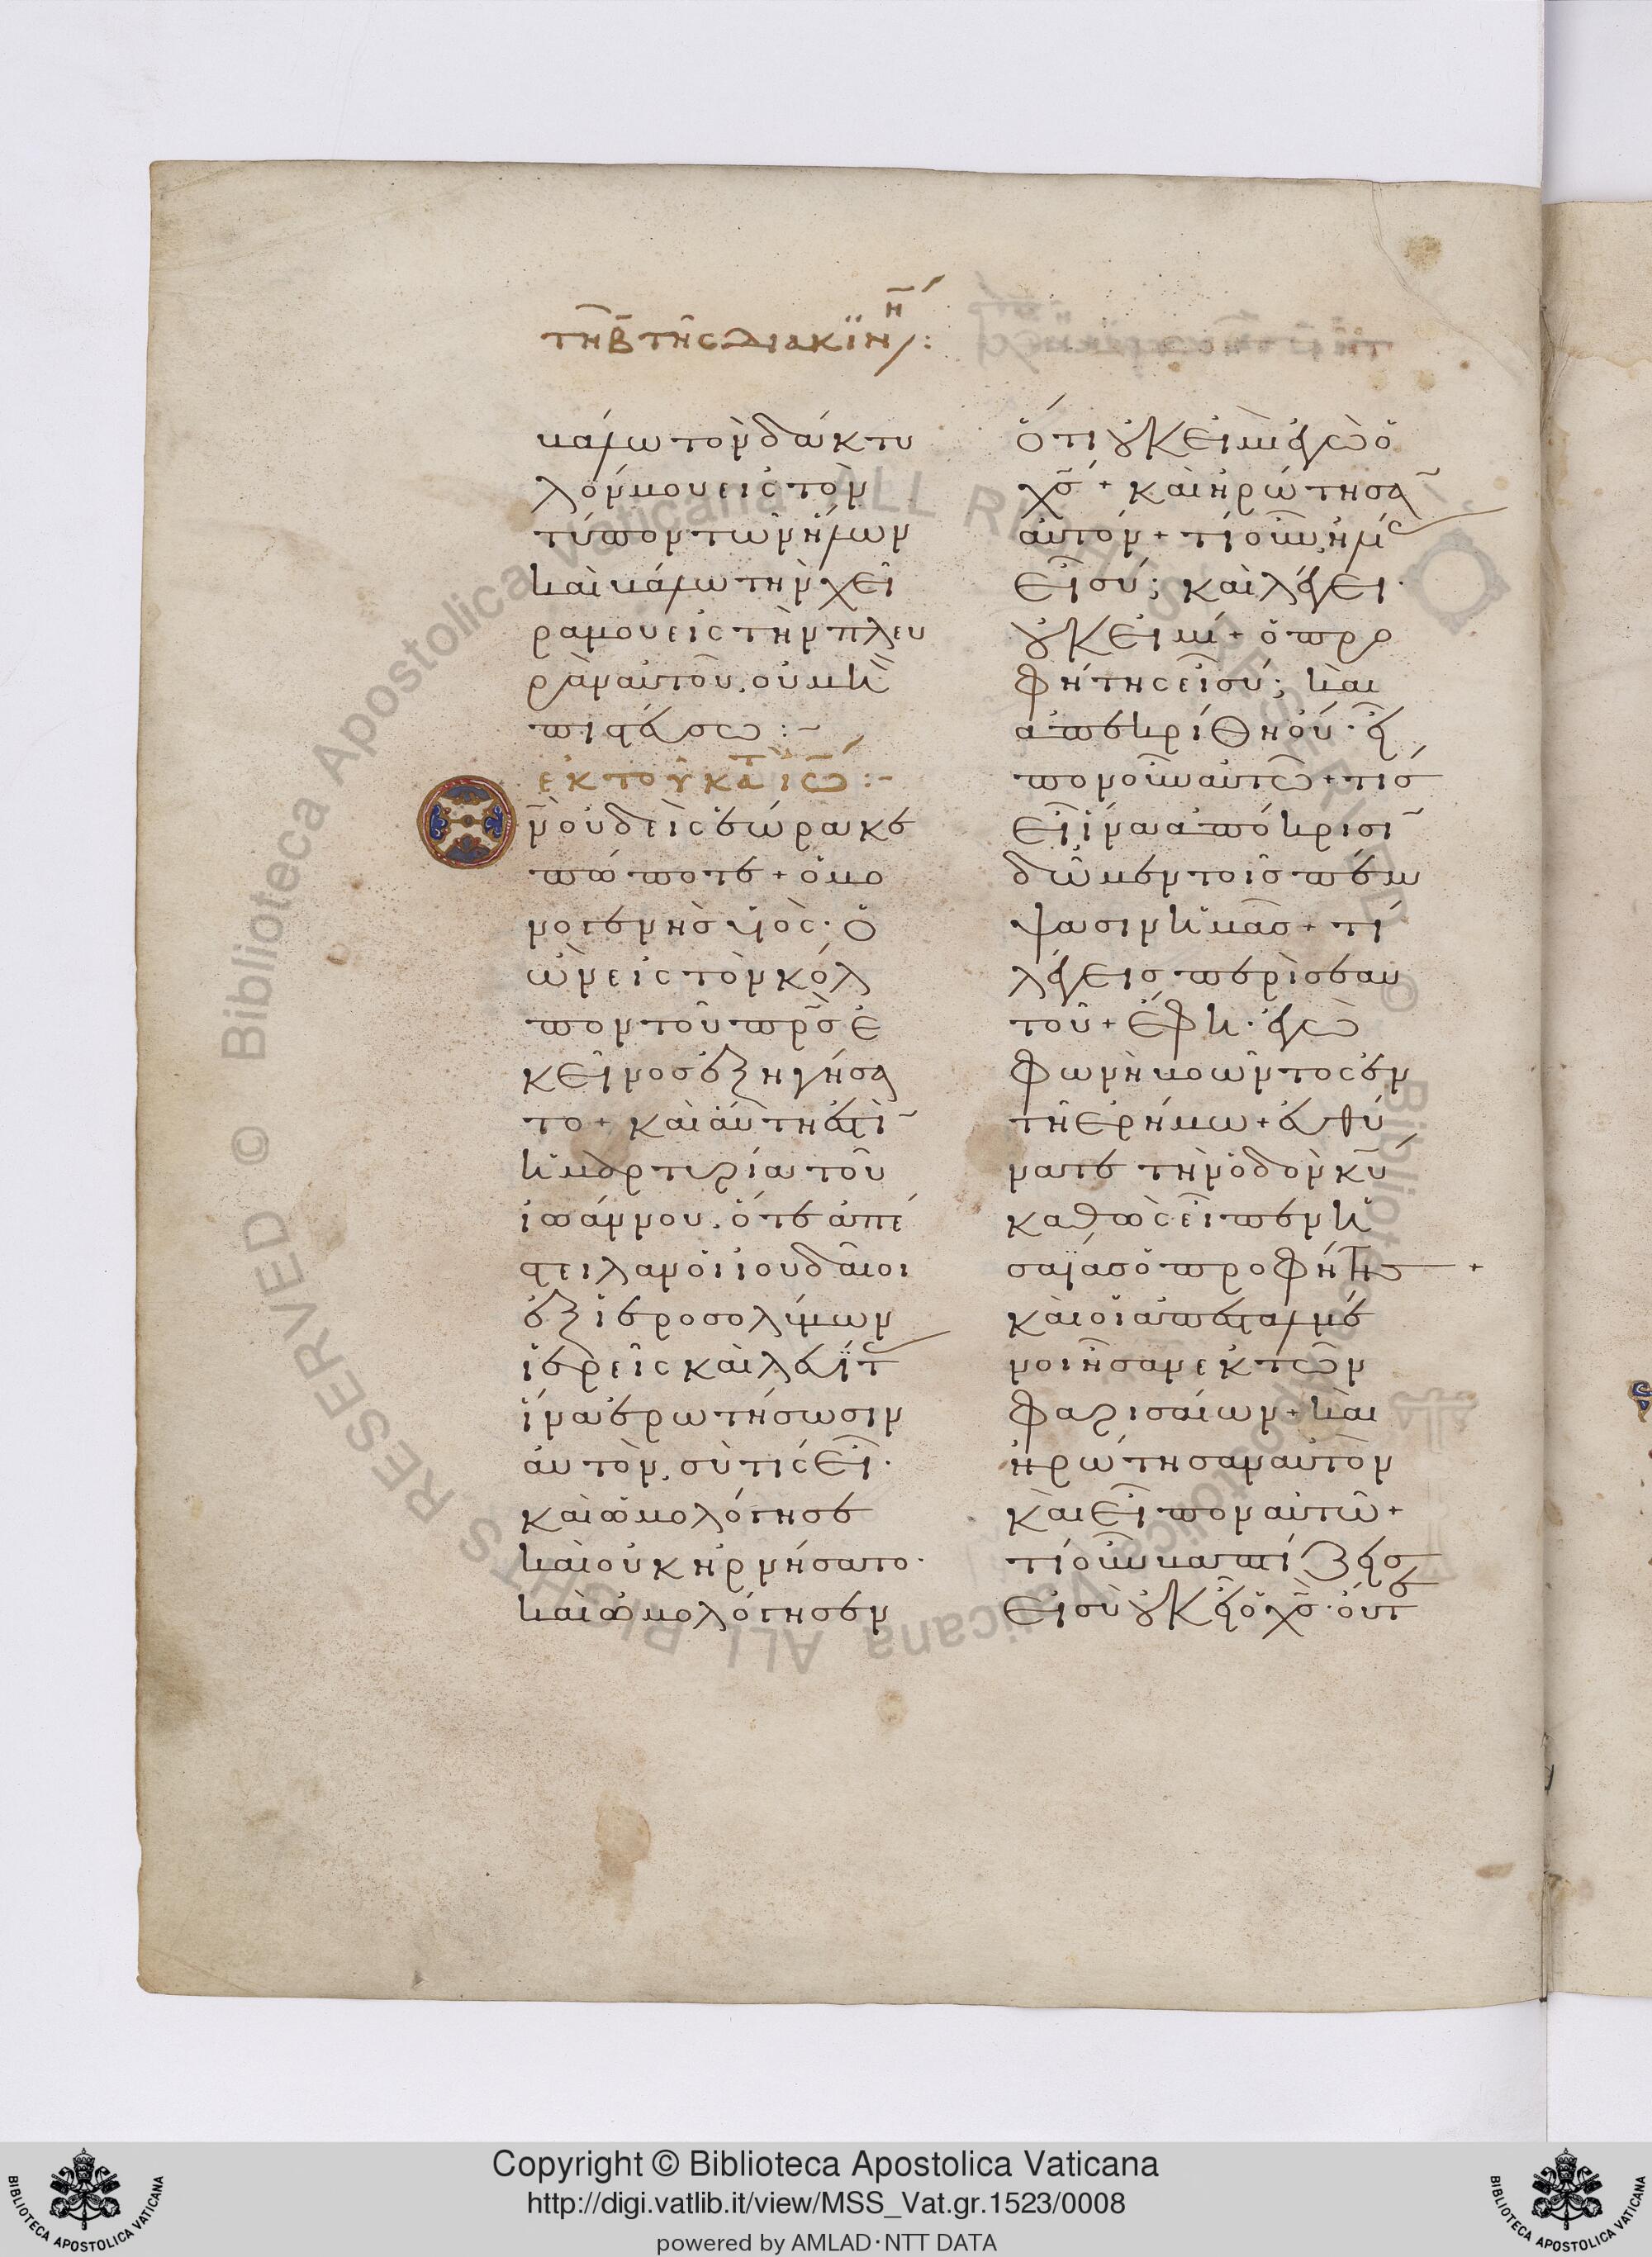 τῆ β̄ τῆς διακϊνη̄ ⁄ :
καὶ βάλω τὸν δάκτυ
λόν μου εἰς τὸν
τύπον τῶν ἥλων
καὶ βάλω τὴν χεῖ
ρα μου εἰς τὴν πλευ
ρὰν αὐτοῦ. οὐ μὴ
πιστεύσω :~
ἐκ τοῦ κατ ἰω :-
ν οὐδεὶς ἑώρακε
πώποτε + ὁ μο
νογενὴς υἱὸς · ὁ
ὢν εἰς τὸν κόλ
πον τοῦ πρς ἐ
κεῖνος ἐξηγήσα
το + καὶ αὕτη ἐστὶ
ἡ μαρτυρία τοῦ
ἰωάννου. ὅτε ἀπέ
στειλαν οἱ ἰουδαῖοι
ἐξ ἱεροσολύμων
ἱερεῖς καὶ λευΐτ
ἵνα ἐρωτήσωσιν
αὐτόν. σὺ τίς εἶ ·
καὶ ὡμολόγησε
καὶ οὐκ ἠρνήσατο ·
καὶ ὡμολόγησεν
ὅτι οὐκ εἰμὶ ἐγὼ ὁ
χς + καὶ ἠρώτησα
αὐτόν + τί οὖν. ἠλί
εἶ σύ; καὶ λέγει ·
οὐκ εἰμί + ὁ προ
φήτης εἶ σύ; καὶ
ἀπεκρίθη οὔ · εἶ
πον οὖν αὐτῶ + τίσ
εἶ ἵνα ἀπόκρισι
δῶμεν τοῖσ πέμ
ψασιν ἡμᾶσ + τί
λέγεισ περὶ σεαυ
τοῦ + ἔφη · ἐγὼ
φωνὴ βοῶντος ἐν
τῆ ἐρήμω + εὐθύ
νατε τὴν ὁδὸν κυ
καθὼς εἶπεν ἡ
σαΐασ ὁ προφήτησ +
καὶ οἱ ἀπεσταλμέ
νοι ἦσαν ἐκ τῶν
φαρισαίων + καὶ
ἠρώτησαν αὐτὸν
καὶ εἶπον αὐτῶ +
τί οὖν βαπτίζεισ
εἰ σὺ οὐκ εἶ ὁ χς · οὔτε
Copyright © Biblioteca Apostolica Vaticana
http://digi.vatlib.it/view/MSS_Vat.gr.1523/0008
powered by AMLAD·NTT DATA
BIBLIOTECA APOSTOLICA VATICANA
BIBLIOTECA APOSTOLICA VATICANA
© Biblioteca Apostolica Vaticana ALL RIGHTS RESERVED
© Biblioteca Apostolica Vaticana ALL RIGHTS RESERVED